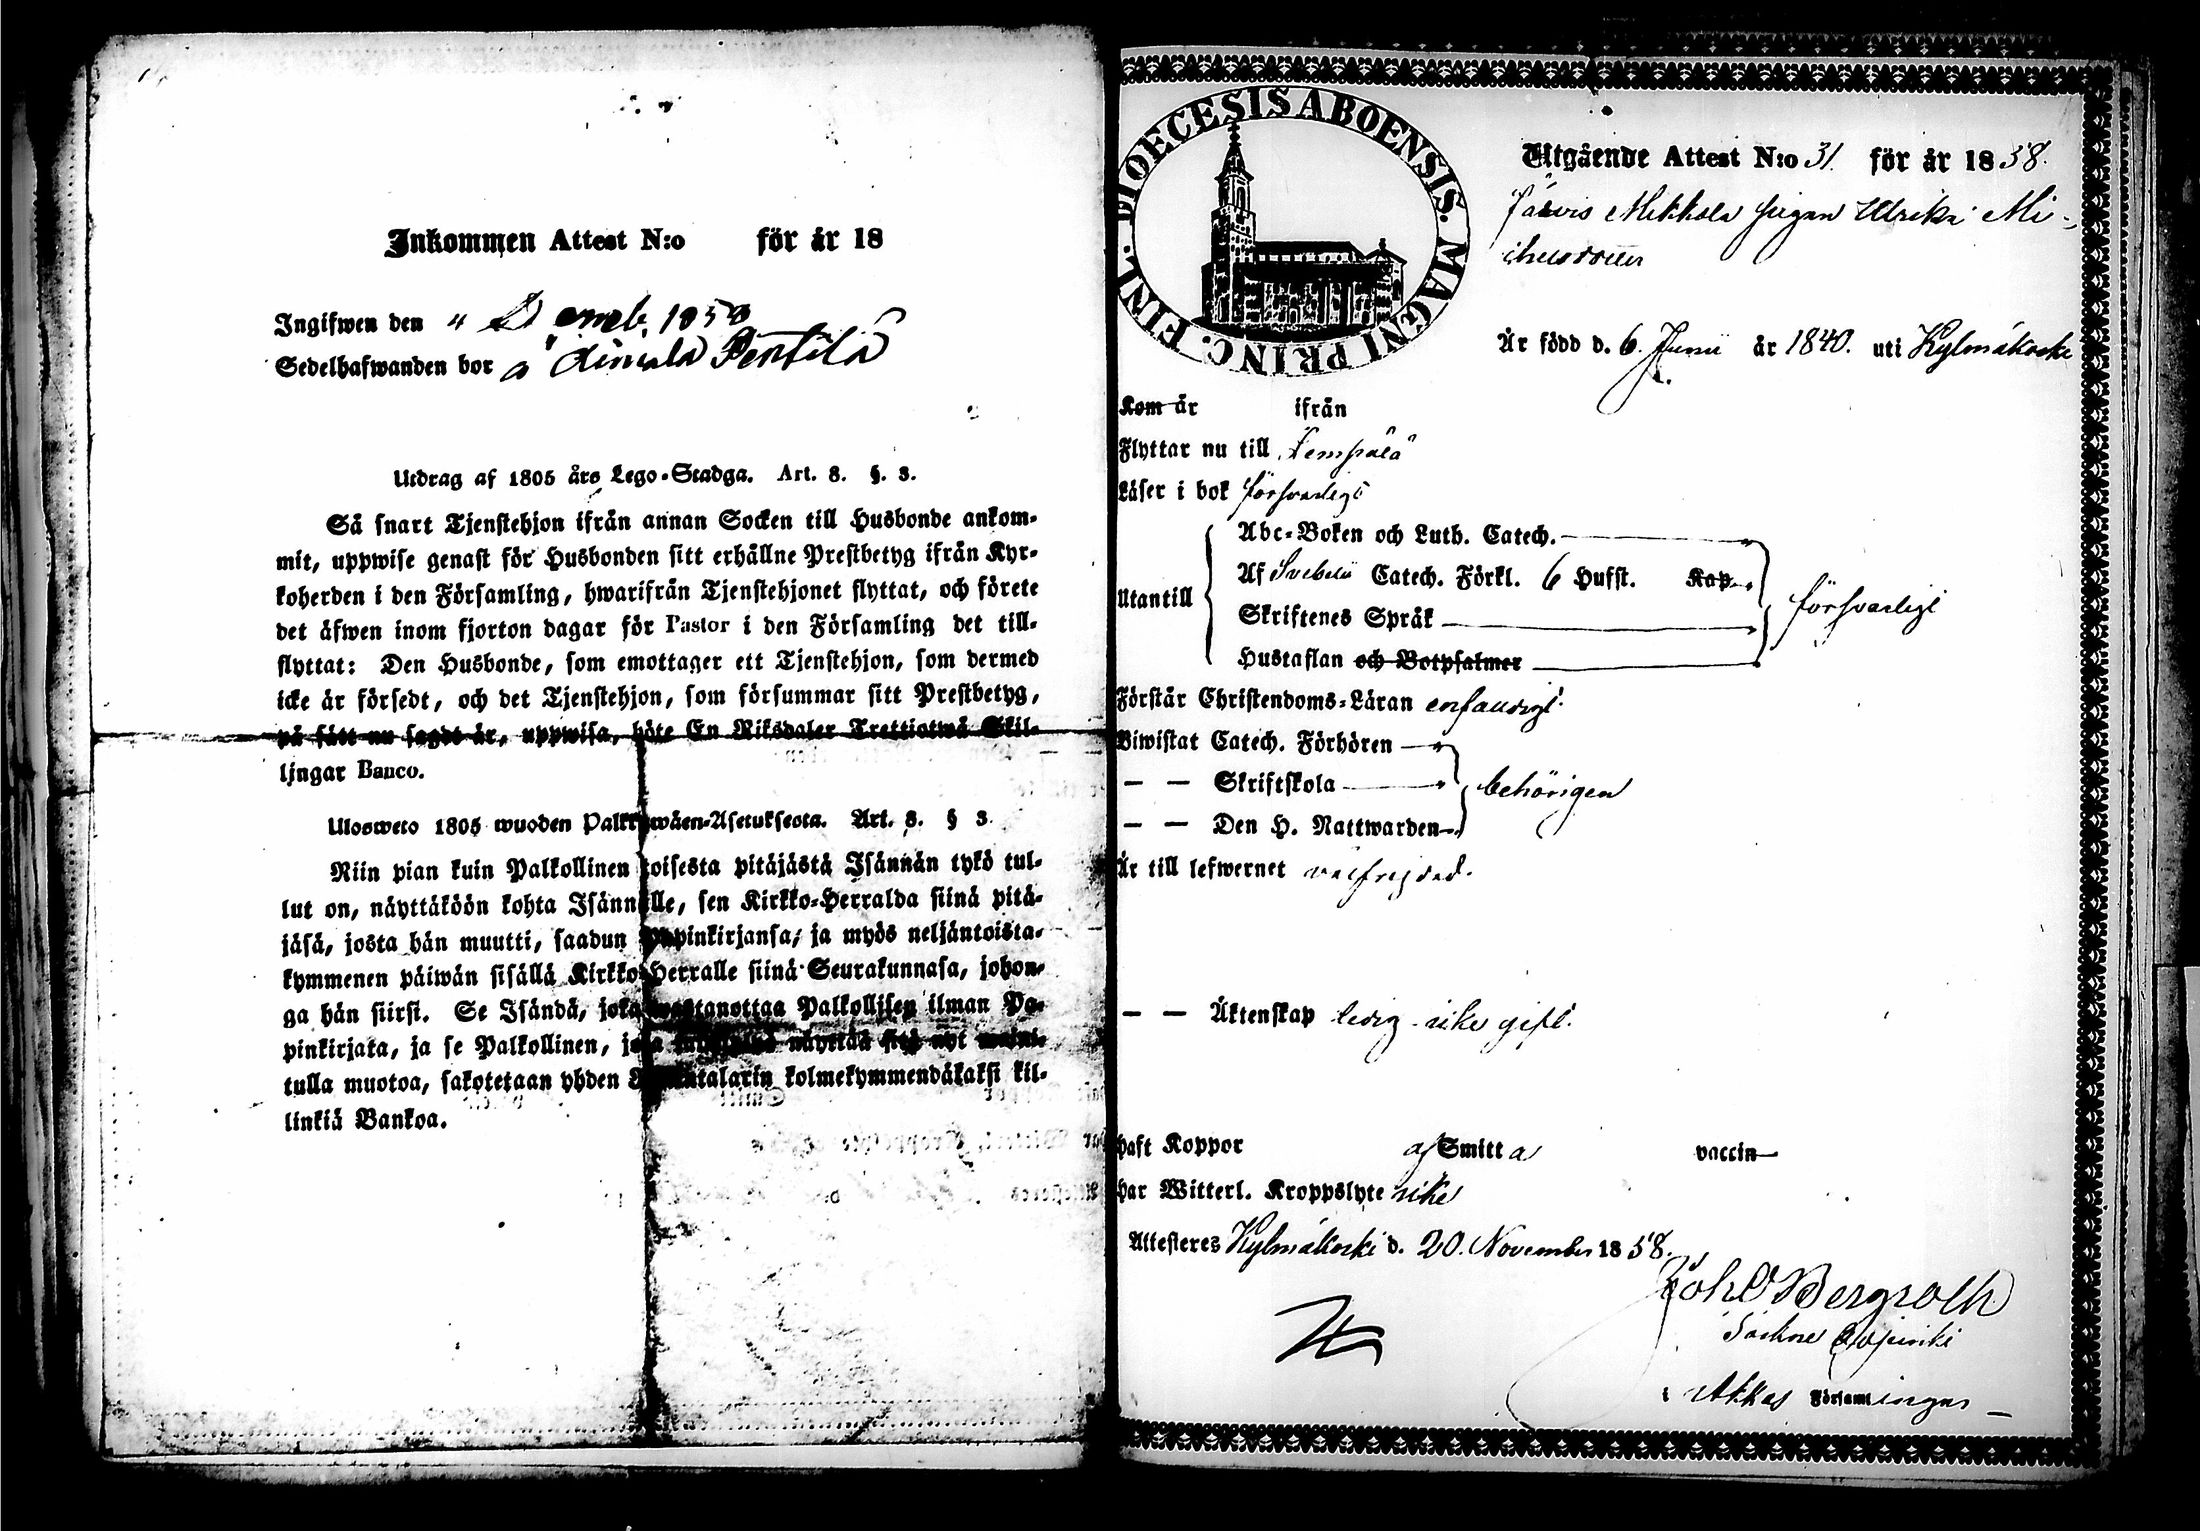 Inkommen Attest N:o för år 18
Ingifwen den 4 Decemb. 1858
Sedelhafwanden bor å Pentilä
Utdrag af 1805 års Lego-Stadga. Art. 8. §. 3.
Så snart Tjenstehjon ifrån annan Socken till Husbonde ankom-
mit, uppwise genast för Husbonden sitt erhållne Prestbetyg ifrån Kyr-
koherden i den Församling, hwarifrån Tjenstehjonet flyttat, och förete
det äfwen inom fjorton dagar för Pastor i den Församling det till-
flyttat: Den Husbonde, som emottager ett Tjenstehjon, som dermed
icke är försedt, och det Tjenstehjon, som försummar sitt Prestbetyg,
på sätt nu sagdt är, uppwisa, böte En Riksdaler Trettiotwå Skil-
lingar Banco.
Ulosweto 1805 wuoden Palkkawäen-Asetuksesta. Art. 8. § 3.
Niin pian kuin Palkollinen toisesta pitäjästä Isännän tykö tul-
lut on, näyttäköön kohta Isännälle, sen Kirkko-Herralda siinä pitä-
jäsä, josta hän muutti, saadun Papinkirjansa, ja myös neljäntoista-
kymmenen päiwän sisällä Kirkko-Herralle siinä Seurakunnasa, johon-
ga hän siirsi. Se Isändä, joka wastanottaa Palkollisen ilman Pa-
pinkirjata, ja se Palkollinen, joka näyttää sitä nyt maini-
tulla muotoa, sakotetaan yhden Riksintalarin kolmekymmendäkaksi kil-
linkiä Bankoa.
FINL. DIOECESIS ABOENSIS. MAGNI PRINC.
Utgående Attest N:o 31. för år 1858.
Järvis Mikkola pigan Ulrika Mi-
chelsdotter
Är född d. 6. Junii år 1840. uti Kylmäkoski
Kom år ifrån
Flyttar nu till Lempälä
Läser i bok försvarligt
Abc-Boken och Luth. Catech.
Utantill Af Svebelii Catech. Förkl. 6 Hufst. Kap. försvarligt
Skriftenes Språk
Hustaflan och Botpsalmer
Förstår Christendoms-Läran enfaldigt.
Biwistat Catech. Förhören
— — Skriftskola behörigen
— — Den H. Nattwarden
Är till lefwernet välfrejdad.
— — Äktenskap ledig icke gift.
haft Koppor af Smitta vaccin
har Witterl. Kroppslyte icke
Attesteras Kylmäkoski d. 20. November 1858.
Joh O Bergroth
Sockne Adjunkt
i Akkas Församlingar